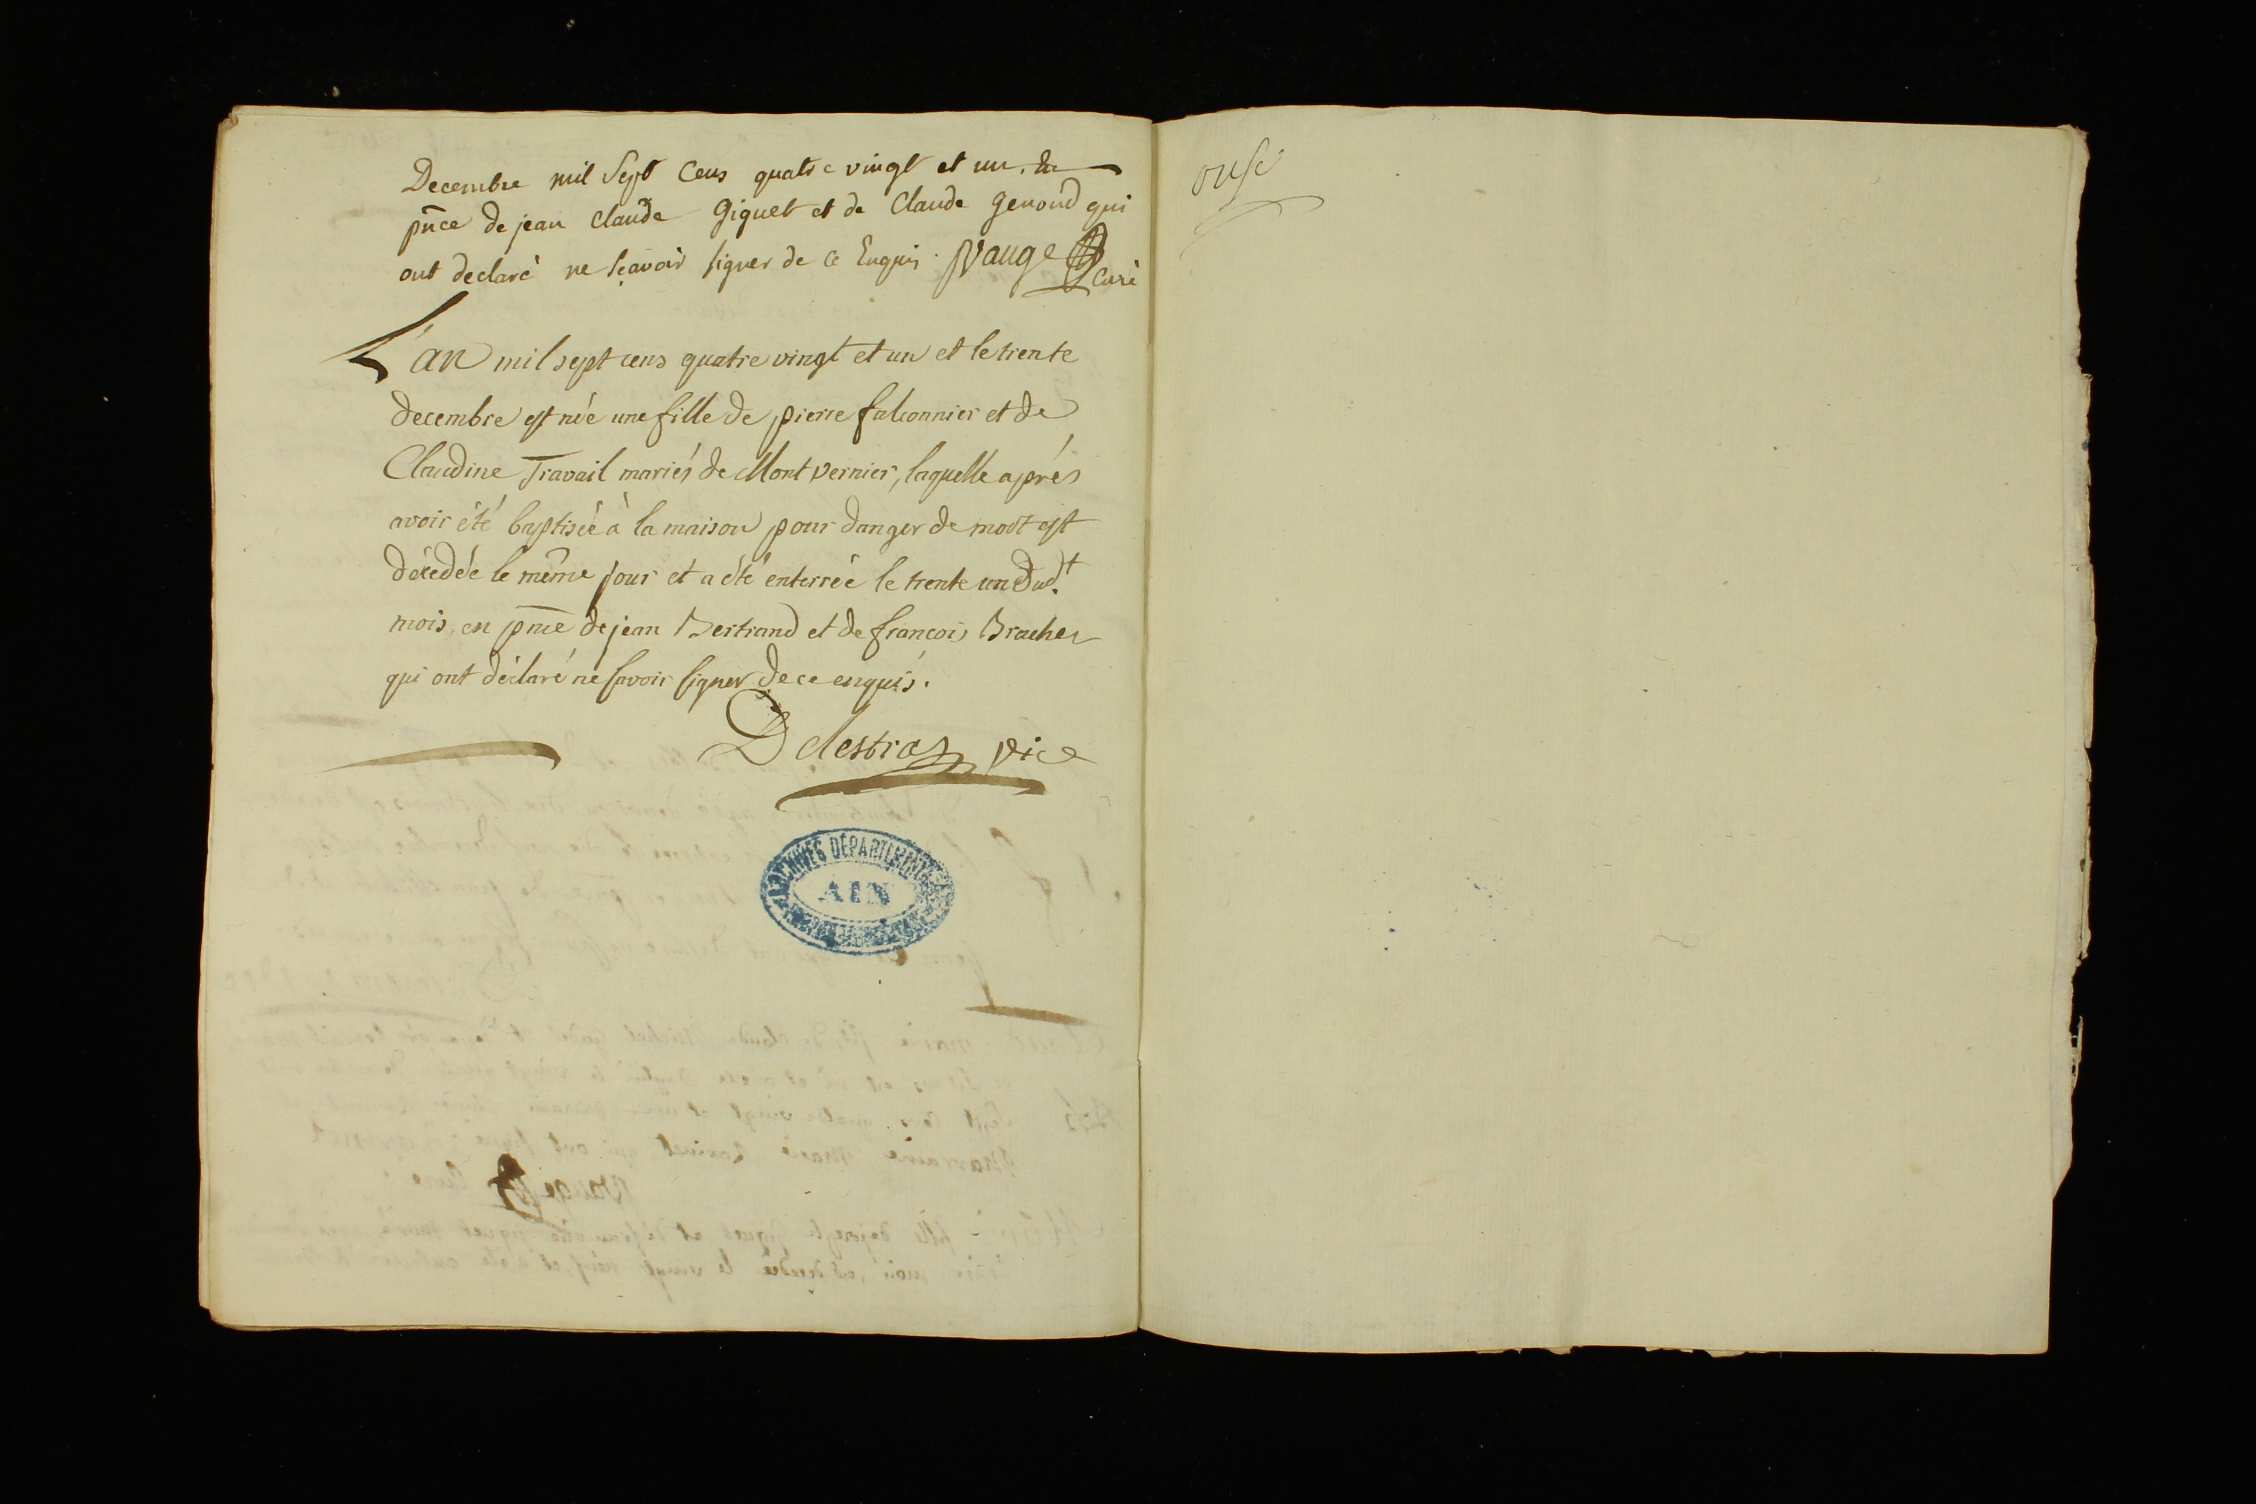 Decembre mil Sept Cens quatre vingt et un. En
pn̄ce de jean Claude Giquet et de Claude genoud qui
ont declaré ne sçavoir signer de ce Enquis. Nauge
Curé
L'an mil sept cens quatre vingt et un et le trente
decembre est née une fille de pierre falconnier et de
Claudine Travail mariés de Montvernier, laquelle aprés
avoir été baptisée à la maison pour danger de mort est
décédée le même jour et a été enterrée le trente un dud.t
mois, en pn̄ce de jean Bertrand et de francois Brachet
qui ont déclaré ne savoir signer de ce enquis.
Delestraz vice
ARCHIVES DÉPARTEMENTALES
AIN